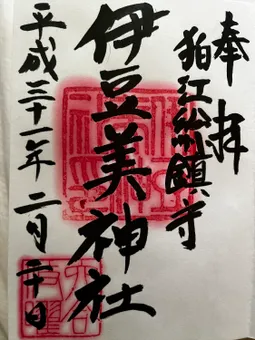 奉拝
狛江総鎮守
伊豆美神社
平成三十一年二月二十日